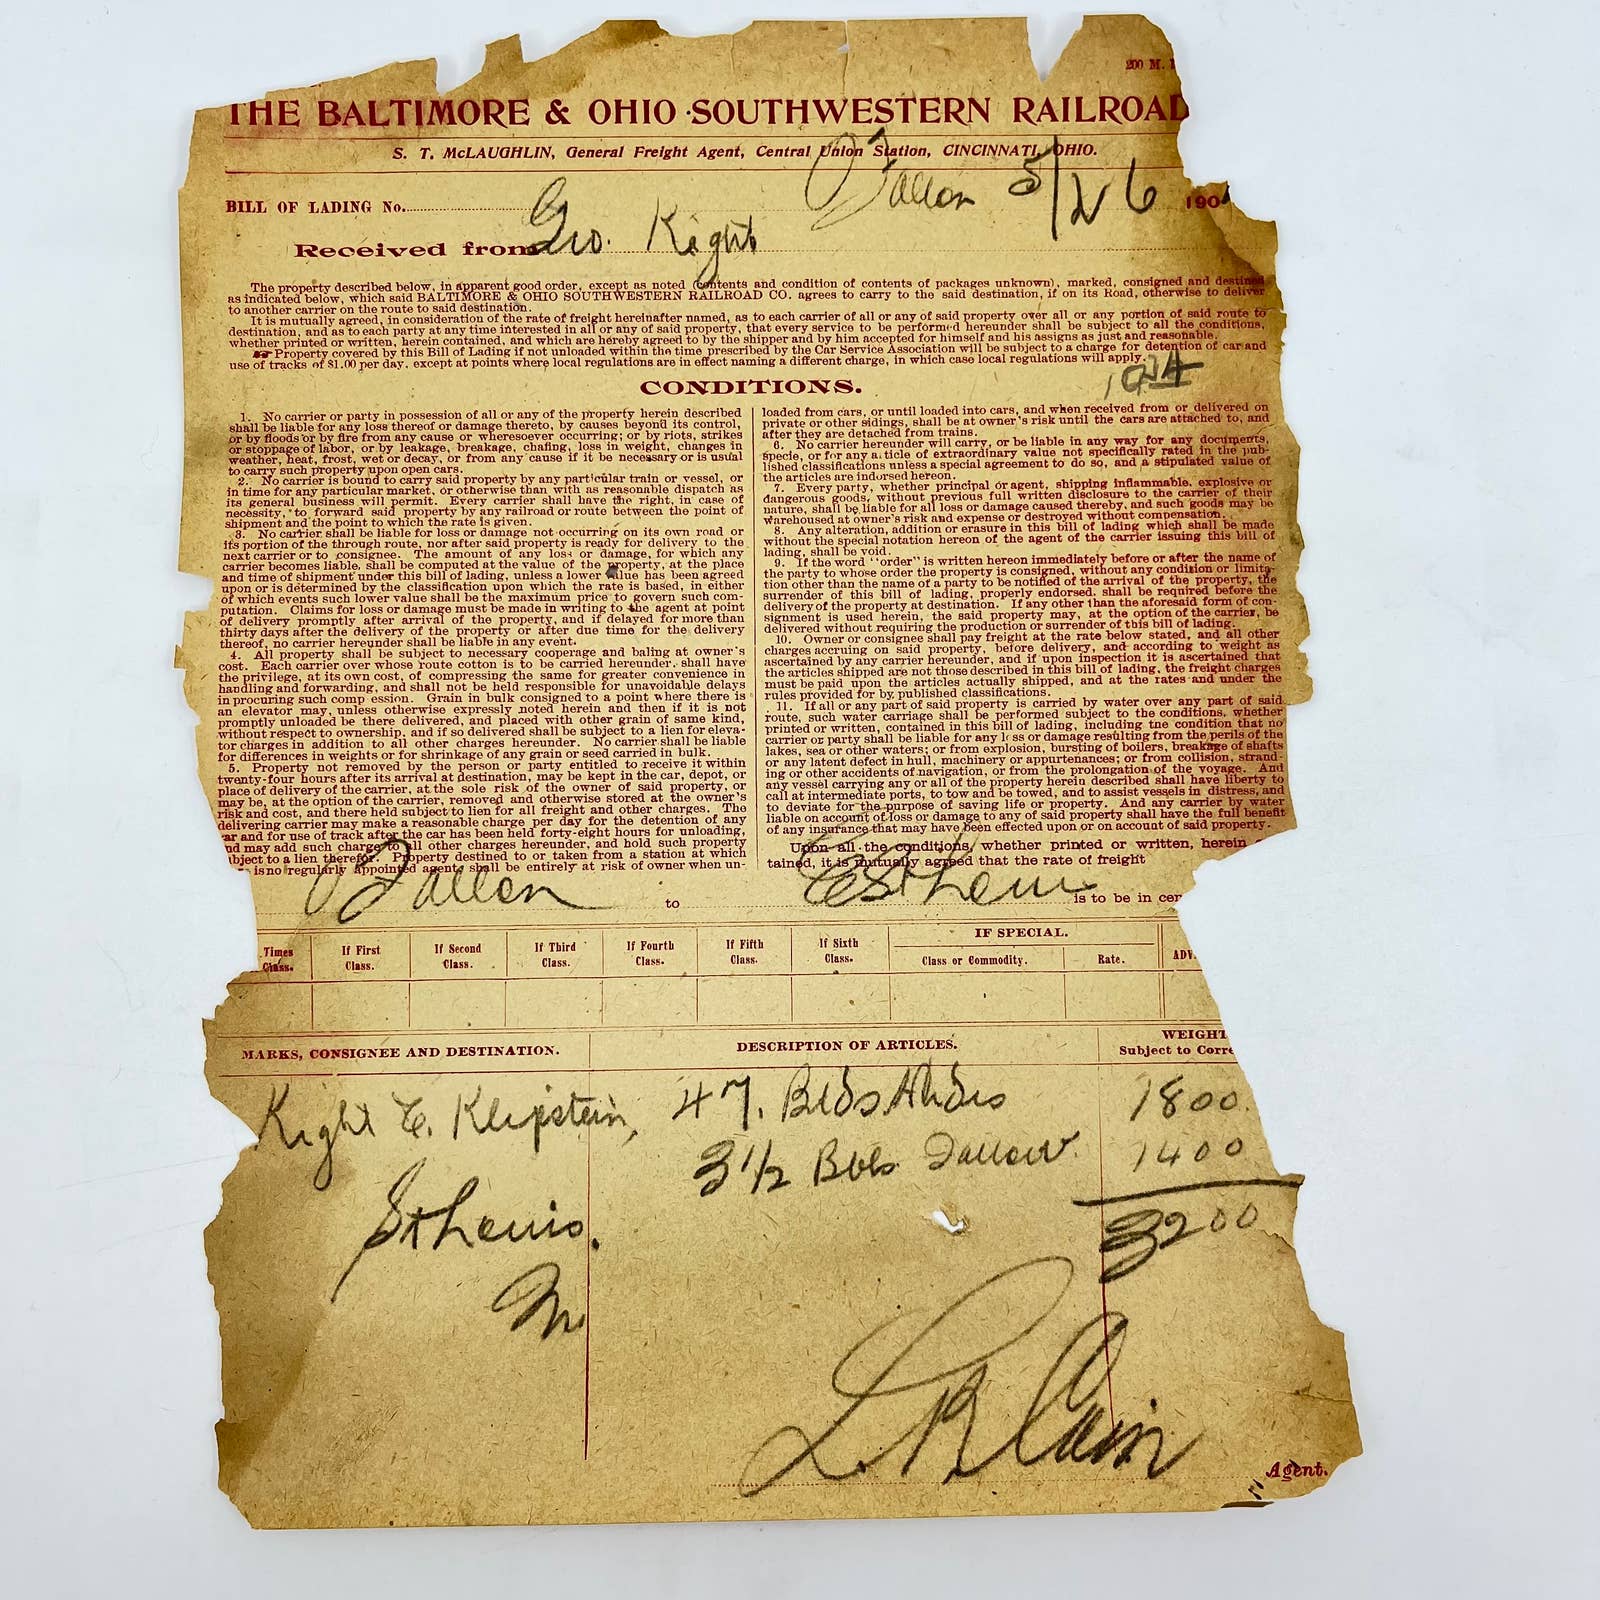 200 M.
THE BALTIMORE & OHIO SOUTHWESTERN RAILROAD
S. T. McLAUGHLIN, General Freight Agent, Central Union Station, CINCINNATI, OHIO.
O'Fallon 5/26 190
BILL OF LADING No.
Received from Geo. Kight
The property described below, in apparent good order, except as noted (contents and condition of contents of packages unknown), marked, consigned and destined
as indicated below, which said BALTIMORE & OHIO SOUTHWESTERN RAILROAD CO. agrees to carry to the said destination, if on its Road, otherwise to deliver
to another carrier on the route to said destination.
It is mutually agreed, in consideration of the rate of freight hereinafter named, as to each carrier of all or any of said property over all or any portion of said route to
destination, and as to each party at any time interested in all or any of said property, that every service to be performed hereunder shall be subject to all the conditions,
whether printed or written, herein contained, and which are hereby agreed to by the shipper and by him accepted for himself and his assigns as just and reasonable.
☞ Property covered by this Bill of Lading if not unloaded within the time prescribed by the Car Service Association will be subject to a charge for detention of car and
use of tracks of $1.00 per day, except at points where local regulations are in effect naming a different charge, in which case local regulations will apply.
CONDITIONS.
1. No carrier or party in possession of all or any of the property herein described
shall be liable for any loss thereof or damage thereto, by causes beyond its control,
or by floods or by fire from any cause or wheresoever occurring; or by riots, strikes
or stoppage of labor, or by leakage, breakage, chafing, loss in weight, changes in
weather, heat, frost, wet or decay, or from any cause if it be necessary or is usual
to carry such property upon open cars.
2. No carrier is bound to carry said property by any particular train or vessel, or
in time for any particular market, or otherwise than with as reasonable dispatch as
its general business will permit. Every carrier shall have the right, in case of
necessity, to forward said property by any railroad or route between the point of
shipment and the point to which the rate is given.
3. No carrier shall be liable for loss or damage not occurring on its own road or
its portion of the through route, nor after said property is ready for delivery to the
next carrier or to consignee. The amount of any loss or damage, for which any
carrier becomes liable, shall be computed at the value of the property, at the place
and time of shipment under this bill of lading, unless a lower value has been agreed
upon or is determined by the classification upon which the rate is based, in either
of which events such lower value shall be the maximum price to govern such com-
putation. Claims for loss or damage must be made in writing to the agent at point
of delivery promptly after arrival of the property, and if delayed for more than
thirty days after the delivery of the property or after due time for the delivery
thereof, no carrier hereunder shall be liable in any event.
4. All property shall be subject to necessary cooperage and baling at owner's
cost. Each carrier over whose route cotton is to be carried hereunder, shall have
the privilege, at its own cost, of compressing the same for greater convenience in
handling and forwarding, and shall not be held responsible for unavoidable delays
in procuring such comp ession. Grain in bulk consigned to a point where there is
an elevator may, unless otherwise expressly noted herein and then if it is not
promptly unloaded be there delivered, and placed with other grain of same kind,
without respect to ownership, and if so delivered shall be subject to a lien for eleva-
tor charges in addition to all other charges hereunder. No carrier shall be liable
for differences in weights or for shrinkage of any grain or seed carried in bulk.
5. Property not removed by the person or party entitled to receive it within
twenty-four hours after its arrival at destination, may be kept in the car, depot, or
place of delivery of the carrier, at the sole risk of the owner of said property, or
may be, at the option of the carrier, removed and otherwise stored at the owner's
risk and cost, and there held subject to lien for all freight and other charges. The
delivering carrier may make a reasonable charge per day for the detention of any
ar and for use of track after the car has been held forty-eight hours for unloading,
nd may add such charge to all other charges hereunder, and hold such property
ubject to a lien therefor. Property destined to or taken from a station at which
is no regularly appointed agent, shall be entirely at risk of owner when un-
loaded from cars, or until loaded into cars, and when received from or delivered on
private or other sidings, shall be at owner's risk until the cars are attached to, and
after they are detached from trains.
6. No carrier hereunder will carry, or be liable in any way for any documents,
specie, or for any article of extraordinary value not specifically rated in the pub-
lished classifications unless a special agreement to do so, and a stipulated value of
the articles are indorsed hereon.
7. Every party, whether principal or agent, shipping inflammable, explosive or
dangerous goods, without previous full written disclosure to the carrier of their
nature, shall be liable for all loss or damage caused thereby, and such goods may be
warehoused at owner's risk and expense or destroyed without compensation.
8. Any alteration, addition or erasure in this bill of lading which shall be made
without the special notation hereon of the agent of the carrier issuing this bill of
lading, shall be void.
9. If the word "order" is written hereon immediately before or after the name of
the party to whose order the property is consigned, without any condition or limita-
tion other than the name of a party to be notified of the arrival of the property, the
surrender of this bill of lading, properly endorsed, shall be required before the
delivery of the property at destination. If any other than the aforesaid form of con-
signment is used herein, the said property may, at the option of the carrier, be
delivered without requiring the production or surrender of this bill of lading.
10. Owner or consignee shall pay freight at the rate below stated, and all other
charges accruing on said property, before delivery, and according to weight as
ascertained by any carrier hereunder, and if upon inspection it is ascertained that
the articles shipped are not those described in this bill of lading, the freight charges
must be paid upon the articles actually shipped, and at the rates and under the
rules provided for by published classifications.
11. If all or any part of said property is carried by water over any part of said
route, such water carriage shall be performed subject to the conditions, whether
printed or written, contained in this bill of lading, including the condition that no
carrier or party shall be liable for any loss or damage resulting from the perils of the
lakes, sea or other waters; or from explosion, bursting of boilers, breakage of shafts
or any latent defect in hull, machinery or appurtenances; or from collision, strand-
ing or other accidents of navigation, or from the prolongation of the voyage. And
any vessel carrying any or all of the property herein described shall have liberty to
call at intermediate ports, to tow and be towed, and to assist vessels in distress, and
to deviate for the purpose of saving life or property. And any carrier by water
liable on account of loss or damage to any of said property shall have the full benefit
of any insurance that may have been effected upon or on account of said property.
Upon all the conditions, whether printed or written, herein
tained, it is mutually agreed that the rate of freight
O'Fallon to E St Louis is to be in cen
Times Class. If First Class. If Second Class. If Third Class. If Fourth Class. If Fifth Class. If Sixth Class. IF SPECIAL. Class or Commodity. Rate. ADV.
MARKS, CONSIGNEE AND DESTINATION. DESCRIPTION OF ARTICLES. WEIGHT Subject to Corre
Kight & Klipstein, 47. Blds Hides 1800.
3 1/2 Bbls Tallow. 1400
St Louis. 3200
Mo.
L R Cain
Agent.